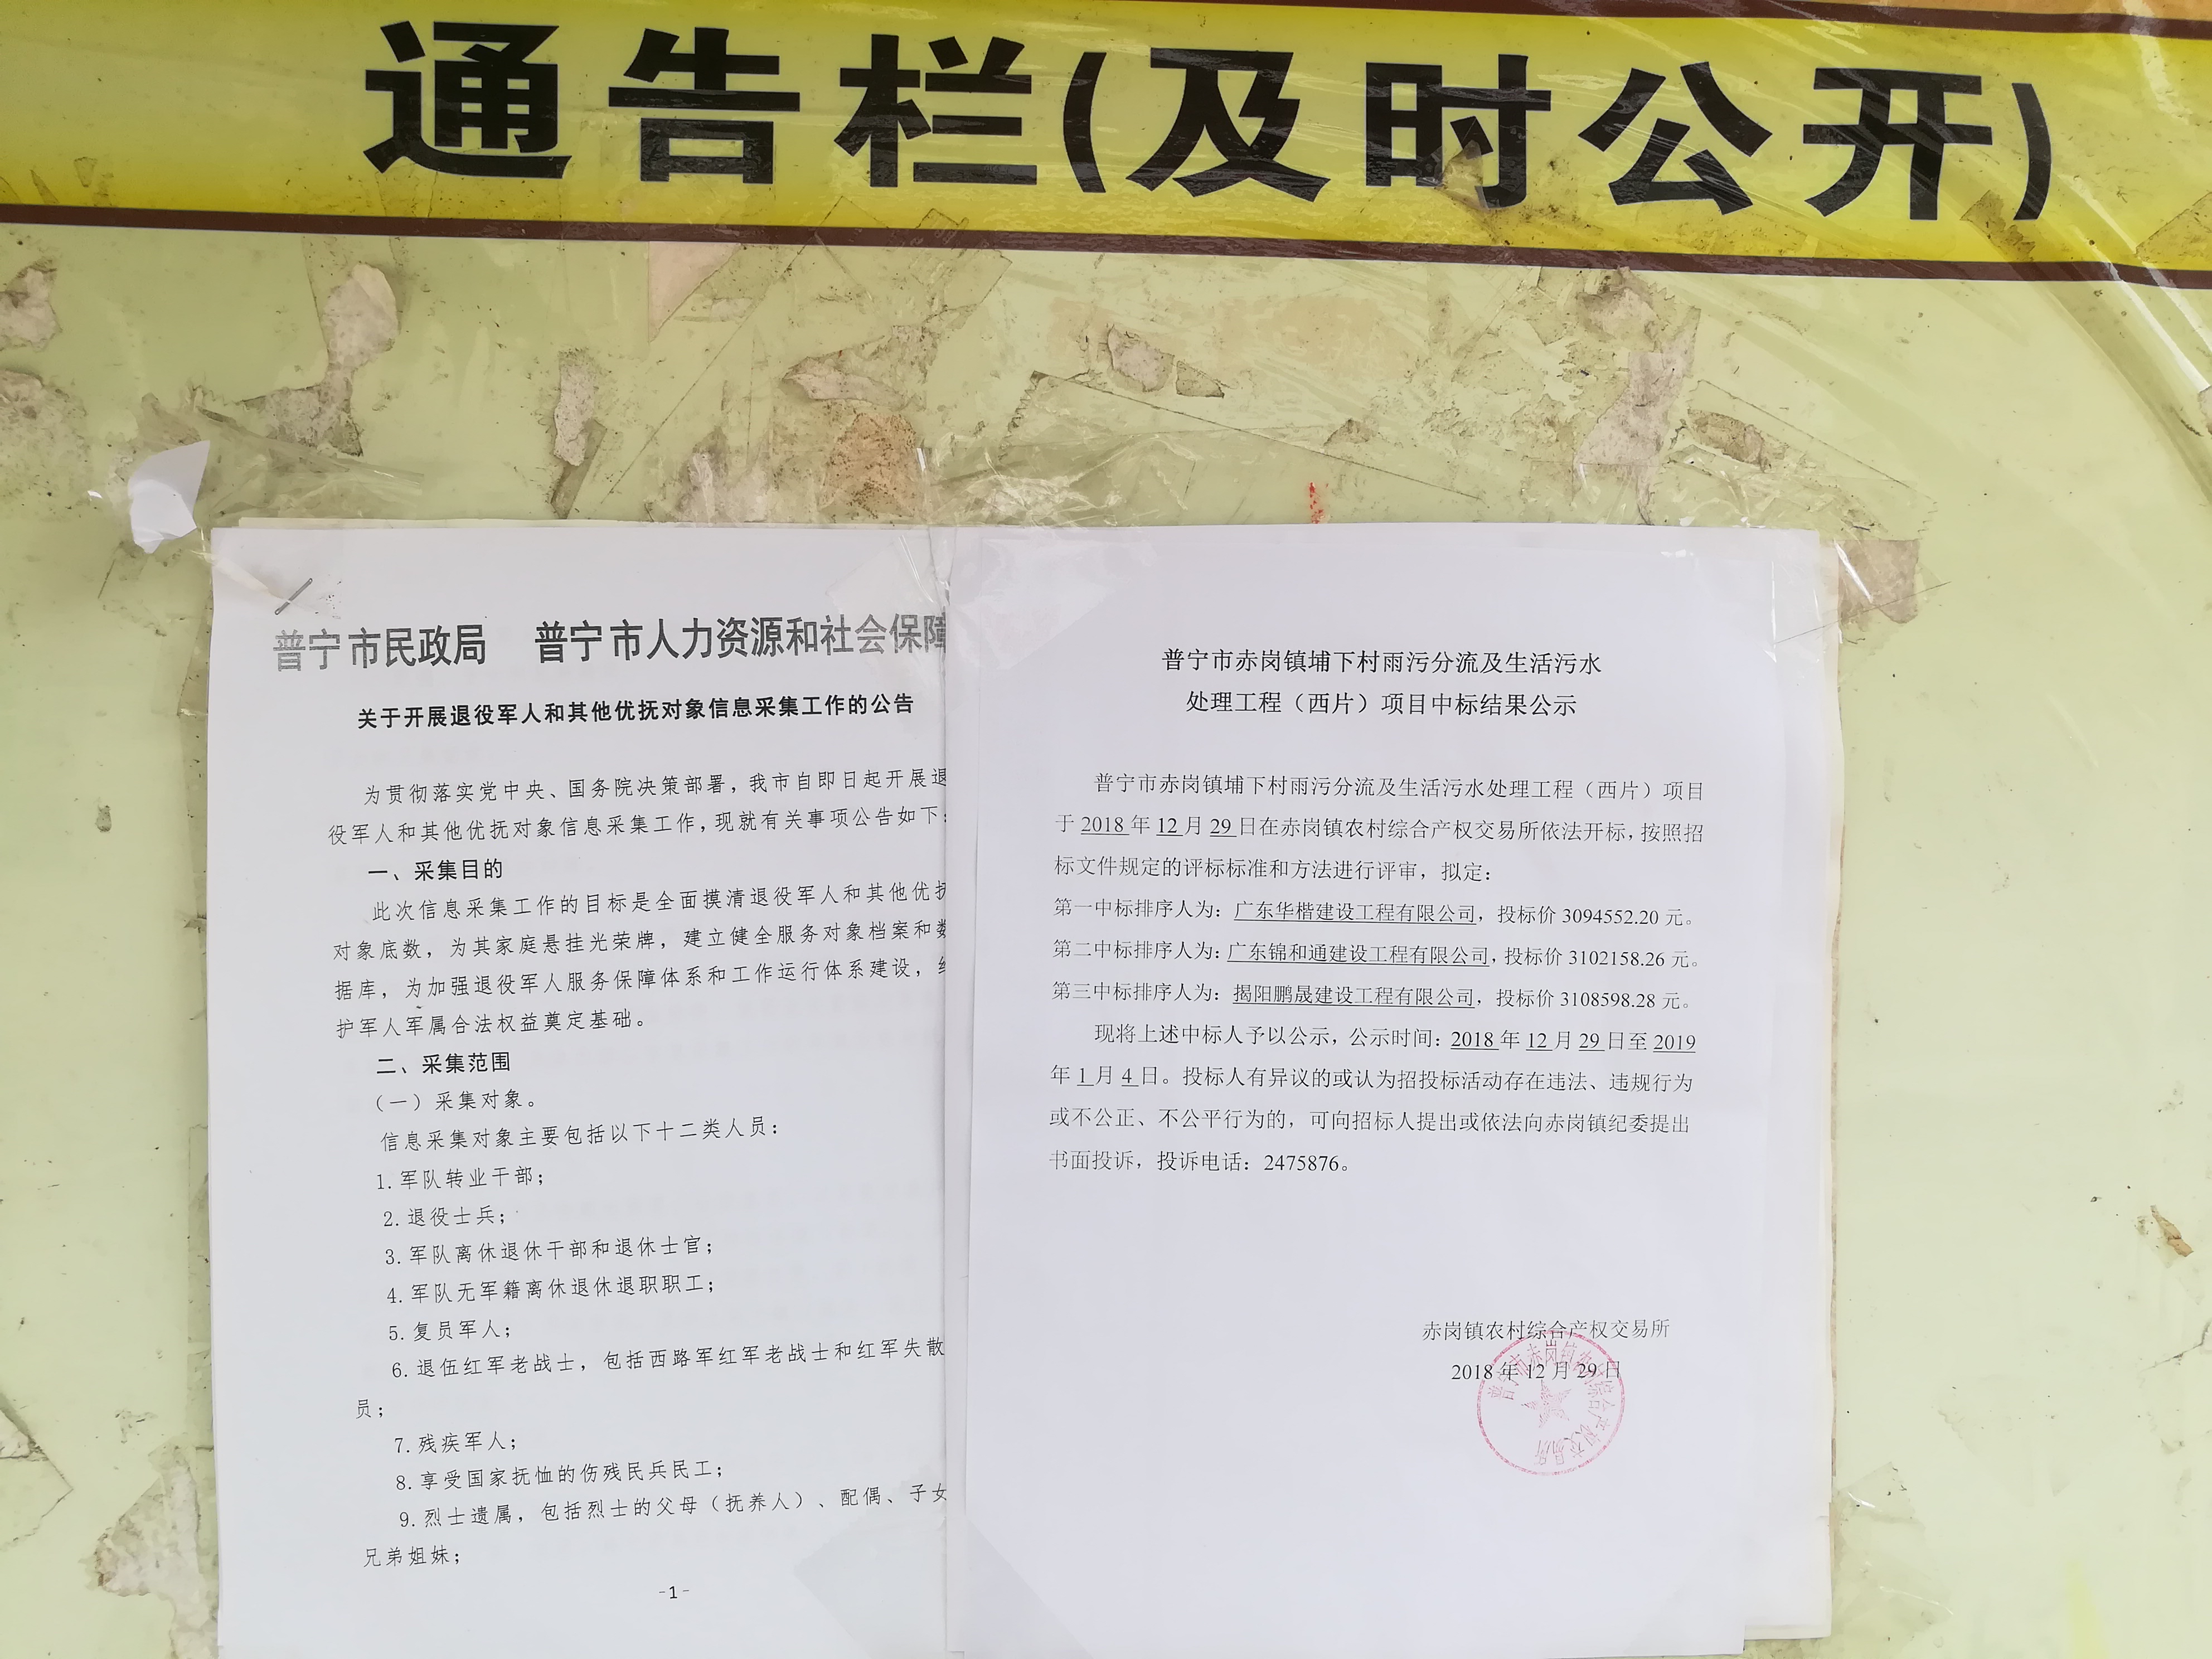 通告栏(及时公开)
普宁市民政局 普宁市人力资源和社会保障
关于开展退役军人和其他优抚对象信息采集工作的公告
为贯彻落实党中央、国务院决策部署，我市自即日起开展退
役军人和其他优抚对象信息采集工作，现就有关事项公告如下：
一、采集目的
此次信息采集工作的目标是全面摸清退役军人和其他优抚
对象底数，为其家庭悬挂光荣牌，建立健全服务对象档案和数
据库，为加强退役军人服务保障体系和工作运行体系建设，
护军人军属合法权益奠定基础。
二、采集范围
（一）采集对象。
信息采集对象主要包括以下十二类人员：
1.军队转业干部；
2.退役士兵；
3.军队离休退休干部和退休士官；
4.军队无军籍离休退休退职职工；
5.复员军人；
6.退伍红军老战士，包括西路军红军老战士和红军失散
员；
7.残疾军人；
8.享受国家抚恤的伤残民兵民工；
9.烈士遗属，包括烈士的父母（抚养人）、配偶、子女
兄弟姐妹；
-1-
普宁市赤岗镇埔下村雨污分流及生活污水
处理工程（西片）项目中标结果公示
普宁市赤岗镇埔下村雨污分流及生活污水处理工程（西片）项目
于 2018 年 12 月 29 日在赤岗镇农村综合产权交易所依法开标，按照招
标文件规定的评标标准和方法进行评审，拟定：
第一中标排序人为：广东华楷建设工程有限公司，投标价 3094552.20 元。
第二中标排序人为：广东锦和通建设工程有限公司，投标价 3102158.26 元。
第三中标排序人为：揭阳鹏晟建设工程有限公司，投标价 3108598.28 元。
现将上述中标人予以公示，公示时间：2018 年 12 月 29 日至 2019
年 1 月 4 日。投标人有异议的或认为招投标活动存在违法、违规行为
或不公正、不公平行为的，可向招标人提出或依法向赤岗镇纪委提出
书面投诉，投诉电话：2475876。
赤岗镇农村综合产权交易所
2018 年 12 月 29 日
普宁市赤岗镇农村综合产权交易所